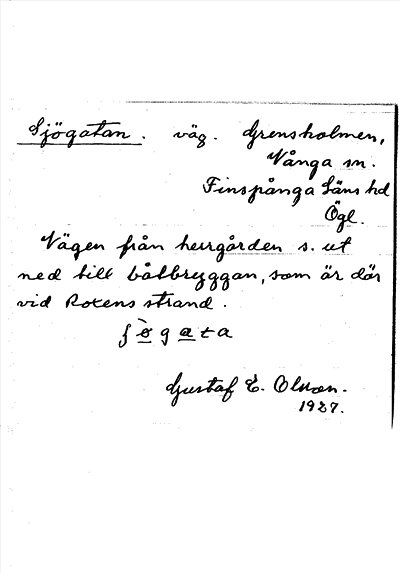 Sjögatan. väg. Grensholmen,
Vånga sn.
Finspånga läns hd
Ögl.
Vägen från herrgården s. ut
ned till båtbryggan, som är där
vid Roxens strand.
Gustaf E. Olsson.
1927.